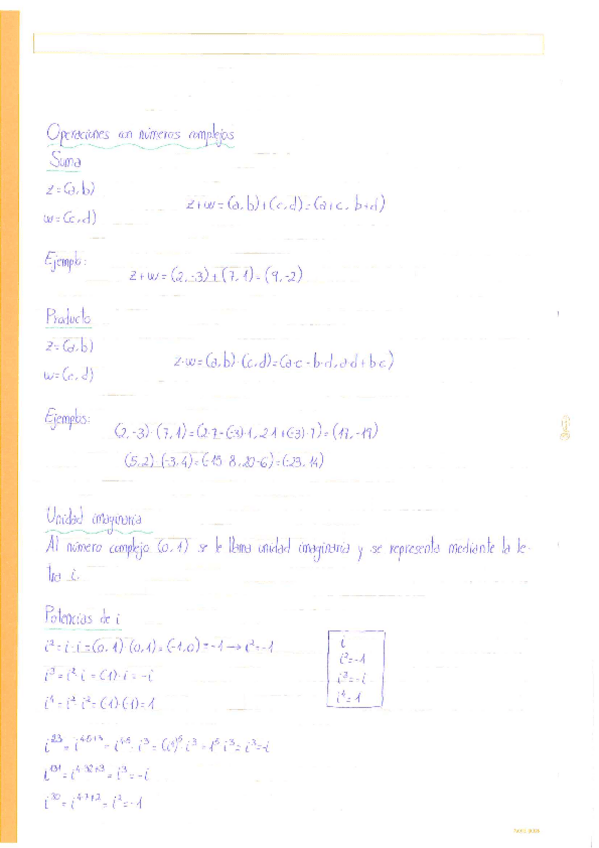 Operaciones con números complejos
Suma
z=(a,b)
w=(c,d)
z+w=(a,b)+(c,d)=(a+c, b+d)
Ejemplo:
z+w=(2,-3)+(7,1)=(9,-2)
Producto
z=(a,b)
w=(c,d)
z·w=(a,b)·(c,d)=(a·c-b·d, a·d+b·c)
Ejemplos:
(2,-3)·(7,1)=(2·7-(-3)·1, 2·1+(-3)·7)=(17,-19)
(5,2)·(-3,4)=(-15-8, 20-6)=(-23,14)
Unidad imaginaria
Al número complejo (0,1) se le llama unidad imaginaria y se representa mediante la le-
tra i.
Potencias de i
i²=i·i=(0,1)·(0,1)=(-1,0)=-1→i²=-1
i³=i²·i=(-1)·i=-i
i⁴=i²·i²=(-1)·(-1)=1
i
i²=-1
i³=-i
i⁴=1
i²³=i⁴·⁵⁺³=i⁴·⁵·i³=(i⁴)⁵·i³=1⁵·i³=i³=-i
i¹³¹=i⁴·³²⁺³=i³=-i
i³⁰=i⁴·⁷⁺²=i²=-1